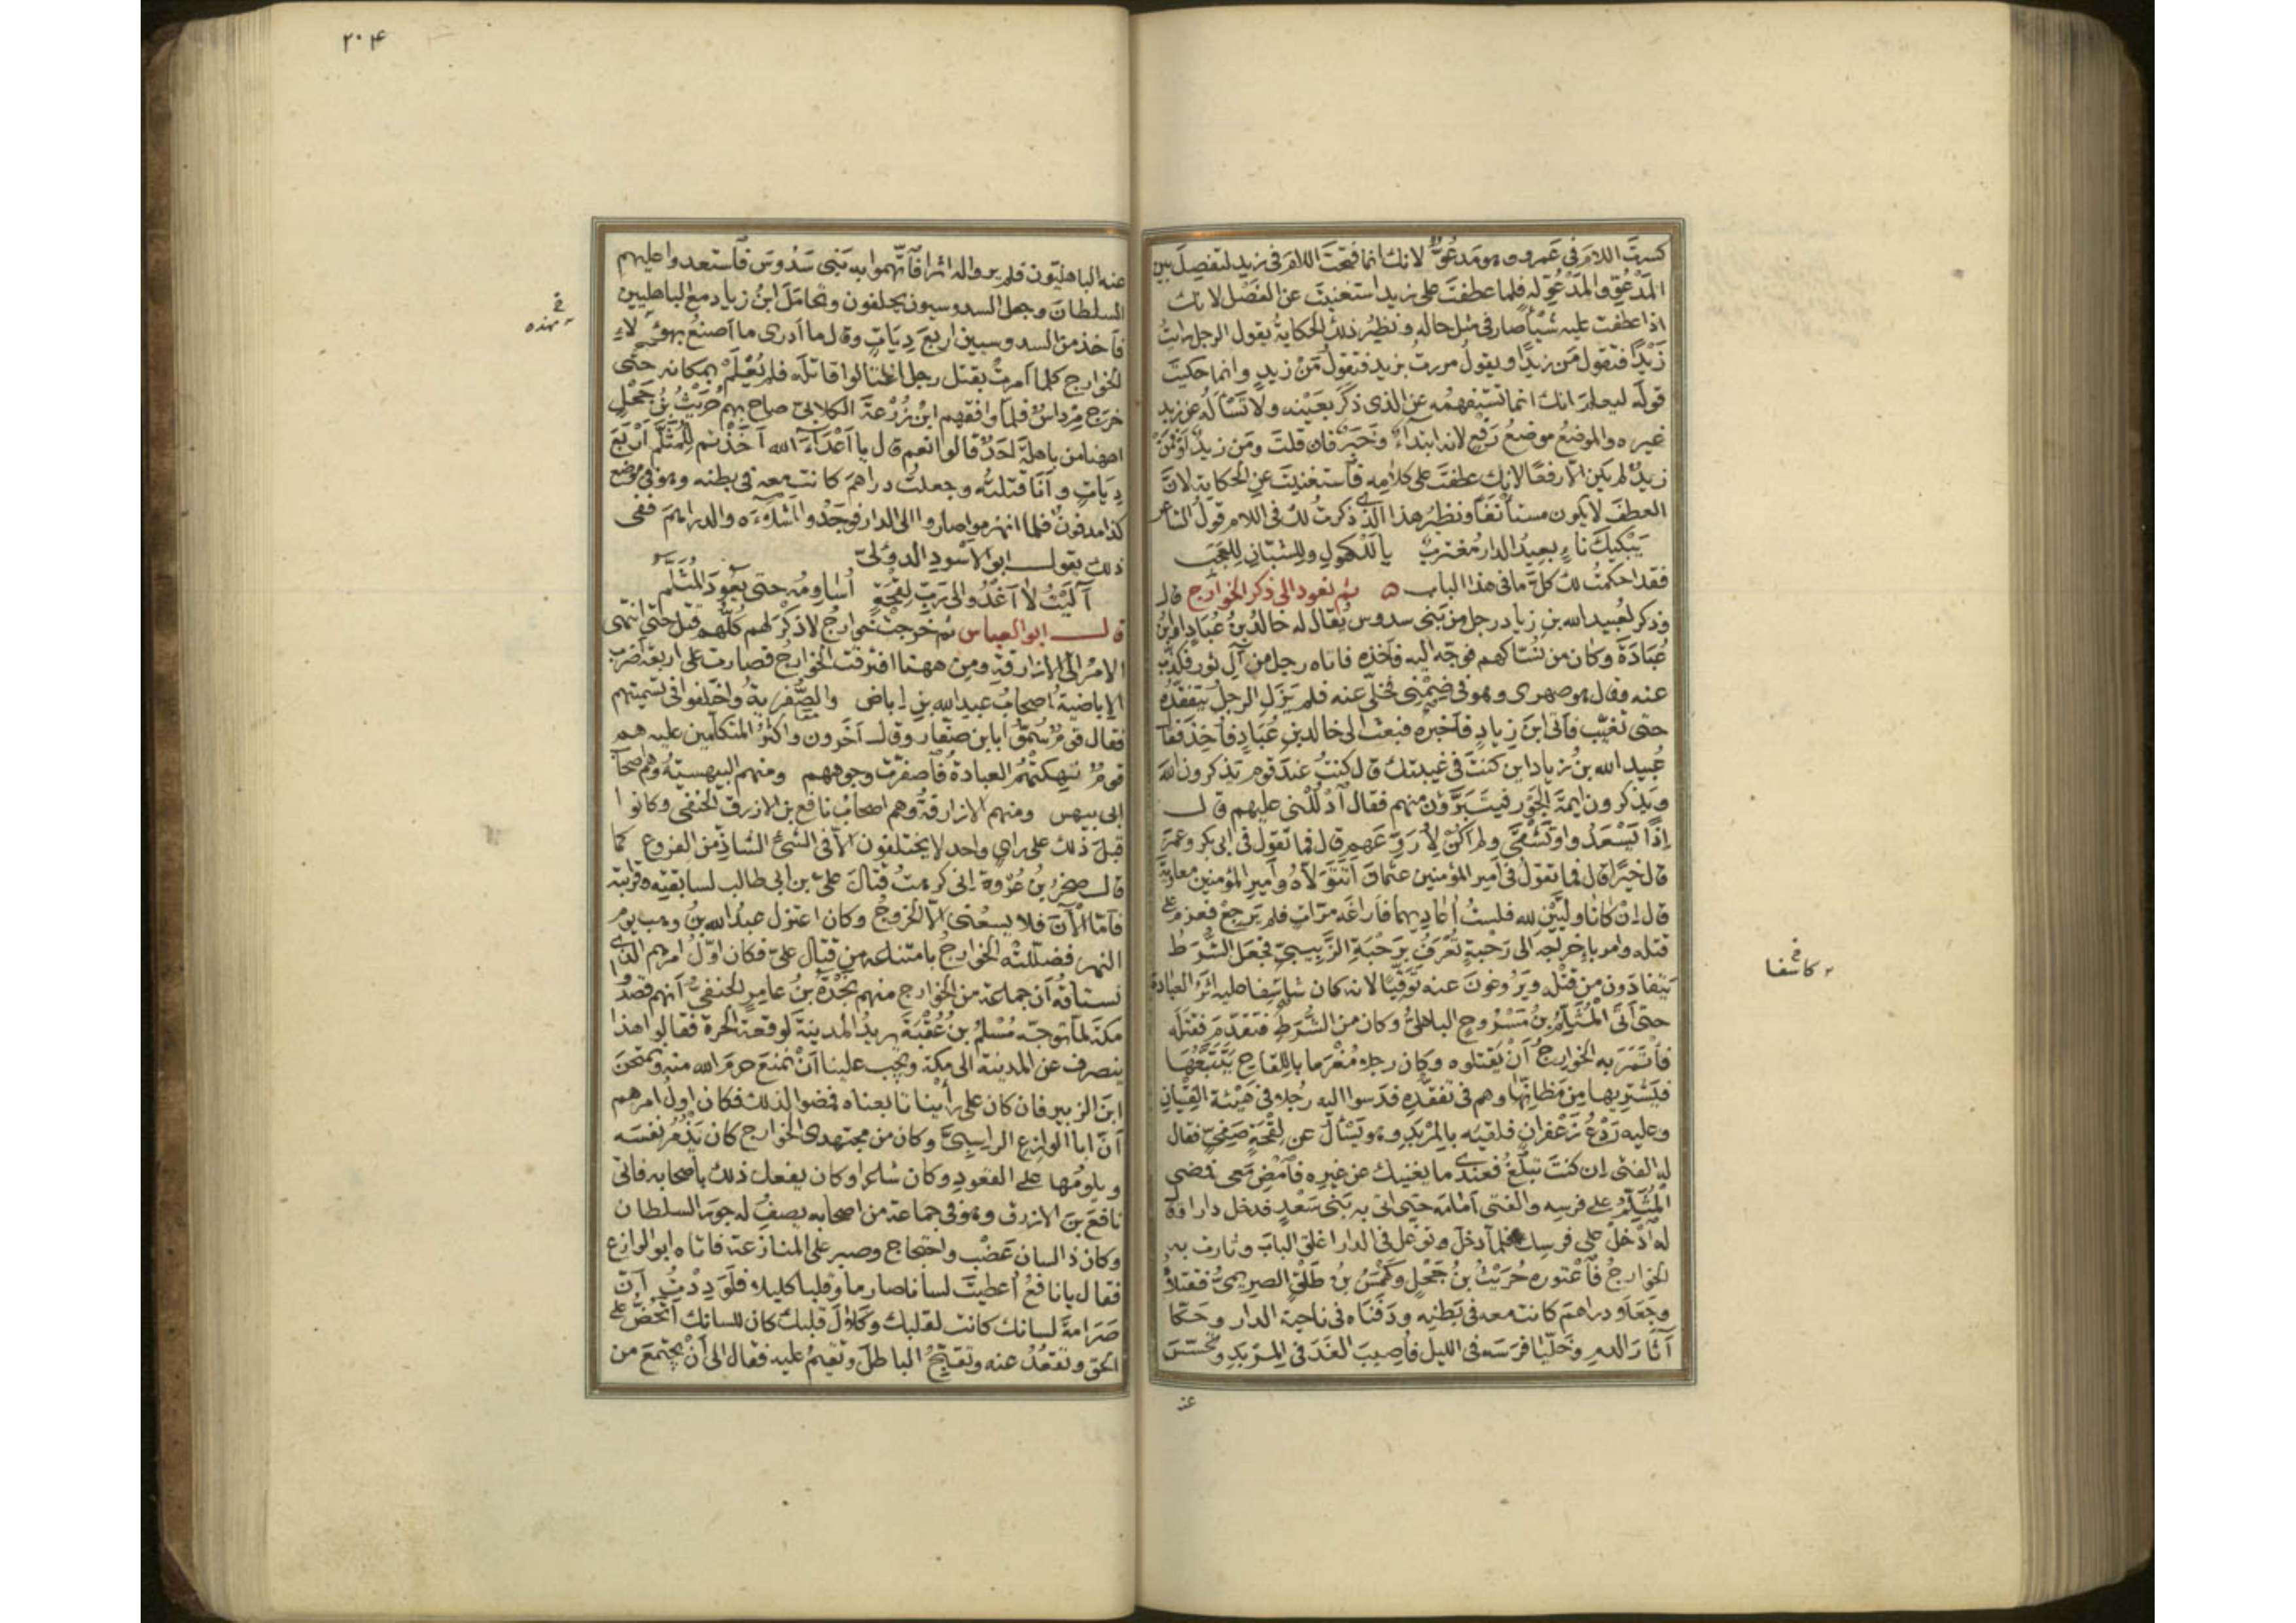 كسرتَ اللامَ فى عَمرو وهو مَدعُوٌّ لانك انما فتحتَ اللامَ فى زيد لتفصِلَ بين
المَدْعُوِّ والمَدْعُوِّ له فلما عطفتَ على زيد استغنيتَ عن الفَصْل لانك
اذا عطفت عليه شيْأً صار فى مثل حاله ونظيرُ ذلك الحكايةُ يقول الرجل رايتُ
زَيْدًا فتقول مَن زيدًا ويقولُ مررتُ بزيد فتقولُ مَنْ زيدٍ وانما حكيتَ
قولَه ليعلمَ انك انما تستفهمُه عن الذى ذكرَ بعَيْنه ولا تَسْأَلُه عن زيد
غيره والموضعُ موضعُ رَفْع لانه ابتداءٌ وخَبَرٌ فان قلتَ ومَن زيدٌ اَوْ فَمَنْ
زيدٌ لم يكن الّا رفعًا لانك عطفتَ على كلامِه فاستغنيتَ عن الحكاية لانَّ
العطفَ لا يكون مستأنَفًا ونظيرُ هذا الّذى ذكرتُ لك فى اللام قولُ الشاعر
يَبْكيكَ ناءٍ بعيدُ الدارِ مُغترِبٌ يالَلْكُهولِ ولِلشبّانِ لِلعَجَبِ
فقد احكمتُ لك كلَّ ما فى هذا الباب ۞ ثم نعود الى ذكر الخوارج قال
وذُكر لعُبيد الله بن زياد رجل من بَنى سدوس يُقال له خالدُ بنُ عُبَادٍ او ابنُ
عُبَادَةَ وكان من نُسّاكهم فوجّه اليه فأخذه فاتاه رجل من آلِ ثور فكذّب
عنه وقال هو صهرى وهو فى ضِمْنِى فخلّى عنه فلم يَزَلِ الرجلُ يتفقّدُه
حتى تغيّب فأتى ابنَ زيادٍ فأخبره فبعثَ الى خالدِ بنِ عُبَادٍ فأُخِذَ فقال
عُبيد الله بنُ زياد اين كنتَ فى غيبتك قال كنتُ عندَ قوم يذكرون اللهَ
ويذكرون ايمةَ الجَوْر فيتبَرَّؤن منهم فقال ادلُلْنى عليهم قال
إذًا يَسْعَدُوا وتَشْقَى ولم اكنْ لِأُرَوِّعَهم قال فما تقول فى ابى بكر وعمرَ
قال خيرًا قال فما تقولُ فى امير المؤمنين عثمانَ اَتَتَوَلّاه وأميرِ المؤمنين معاويةَ
قال اِنْ كانا وليَّيْنِ لله فلستُ أُعادِيهما فأراغَه مرّاتٍ فلم يَرجِعْ فعزم على
قتله وامر بإخراجه الى رَحْبةٍ تُعْرَفُ بِرَحْبَةِ الزَّيْنبىّ فجَعَلَ الشُّرَطُ
يَتَفادَون من قتْله ويَرُوغونَ عنه تَوَقّيًا لانه كان شاسِفا عليه اثرُ العبادة
حتى أتَى المُثَلَّمُ بنُ مَسْرُوحٍ الباهلىُّ وكان من الشُّرَطِ فتقدّمَ فقتَلَه
فأْتَمَرَ به الخوارجُ أَنْ يَقتلوه وكان رجلا مُغْرَما باللِقاحِ يَتَتَبَّعُها
فيَشتريها من مَظانّها وهم فى تفقّدِه فدَسّوا اليه رجُلا فى هَيْئة الفِتْيانِ
وعليه رَدْعُ زعْفرانٍ فلقيَه بالمِرْبَدِ وهو يَسْألُ عن لِقْحةٍ صَفِىٍّ فقال
له الفتى ان كنتَ تبلُغُ فعندى ما يُغنيك عن غيرِه فامْضِ معى فمضى
المُثَلَّمُ على فرسِه والفتى أمَامَه حتى اتى به بَنى سَعْدٍ فدخل دارا وقال
له ادْخُلْ على فرسِك فلما دخل وتوغّل فى الدار اغلق البابَ وثارت به
الخوارجُ فاعْتوره حُرَيْثُ بنُ جَحْلٍ وكَهْمَسُ بنُ طَلْقٍ الصريمىُّ فقتلاه
وجَعَلا دراهمَ كانت معه فى بَطنِه ودَفَناه فى ناحية الدار وحَكّا
آثارَ الدم وخلّيا فرسَه فى الليل فأُصيبَ الغَدَ فى المِرْبَدِ وتحسّسَ
عنه
كاشفا
٢٠٤
عنه الباهليّون فلم يروا له اثرًا فاتّهموا به بَنى سَدُوسَ فاستعدوا عليهم
السلطانَ وجعل السدوسيون يحلفون وتحامَلَ ابنُ زياد مع الباهليين
فأخذ من السدوسيين اربعَ دِيَاتٍ وقال ما أدرى ما أصنعُ بهؤلاءِ
الخوارج كلما أمرتُ بقتل رجل اغتالوا قاتلَه فلم يُعْلَمْ بمكانه حتى
خرج مِرْداسٌ فلما وافقهم ابنُ زُرْعةَ الكلابىّ صاح بهم حُرَيْثُ بنُ جَحْلٍ
اههنا من باهلةَ أحدٌ قالوا نعم قال يا أعْدآءَ الله أخذتم للمُثَلَّم أرْبَعَ
دِيَاتٍ وأنَا قتلتُه وجعلتُ دراهمَ كانت معه فى بطنه وهو فى موضع
كذا مدفونٌ فلما انهزموا صاروا الى الدار فوجَدُوا أشْلآءَه والدراهمَ ففى
ذلك يقول ابو الاسْودِ الدؤلىّ
آلَيْتُ لا أغْدُو الى رَبِّ لِقْحةٍ أُساوِمُه حتى يعُودَ المُثَلَّمُ
قال ابو العباس ثم خرجتْ خوارجُ لا ذِكْرَ لهم كلُّهم قُتل حتى انتهى
الامرُ الى الازارقةِ ومن ههنا افترقت الخوارجُ فصارت على اربعة اضرب
الإباضيةُ اصحابُ عبد الله بنِ إباض والصُّفْريةُ واختلفوا فى تسميتهم
فقال قومٌ سُمّوا بابنِ صفّار وقال آخَرون واكثرُ المتكلّمين عليه هم
قومٌ نَهِكتْهُمُ العبادةُ فاصفرّت وجوههم ومنهم البيهسيّةُ وهم اصحاب
ابى بيهس ومنهم الازارقةُ وهم اصحابُ نافع بن الازرق الحنفى وكانوا
قبلَ ذلك على رأىٍ واحدٍ لا يختلفون الّا فى الشئ الشاذِّ من الفروع كما
قال صخرُ بنُ عُرْوة إنى كرهتُ قتالَ علىّ بن ابى طالب لسابقتِه وقرابته
فأمّا الْآنَ فلا يسعُنى الّا الخروجُ وكان اعتزل عبدَ الله بنَ وهب يوم
النهر فضلّلتْه الخوارجُ بامتناعه من قتال علىّ فكان اوّلُ امرهم الذى
نستاقُه أنّ جماعةً من الخوارج منهم نَجْدَةُ بنُ عامرٍ الحنفىُّ أنهم قصدوا
مكةَ لمّا توجّه مُسْلمُ بنُ عُقْبةَ يريدُ المدينةَ لوقعة الحرّة فقالوا هذا
ينصرف عن المدينة الى مكة ويجب علينا أنْ نمنعَ حرمَ الله منه ونمتحنَ
ابنَ الزبير فان كان على رأْينا تابعناه فمضوا لذلك فكان اولُ امرهم
أنّ ابا الوازع الراسبىَّ وكان من مجتهدى الخوارج كان يَذْمُرُ نفسَه
ويلومُها على القعودِ وكان شاعرا وكان يفعل ذلك بأصحابه فأتى
نافعَ بنَ الازرق وهو فى جماعة من اصحابه يصِفُ له جورَ السلطان
وكان ذا لسان عَضْبٍ واحتجاج وصبر على المنازعة فاتاه ابو الوازع
فقال يا نافعُ أُعطيتَ لسانا صارما وقلبا كليلا فلَوَدِدْتُ أنّ
صَرامةَ لسانك كانت لقلبك وكَلالَ قلبِك كان للسانك أتحُضُّ على
الحقّ وتقعُدُ عنه وتُقبّحُ الباطلَ وتُقيمُ عليه فقال الى أنْ يجتمعَ من
بهذه